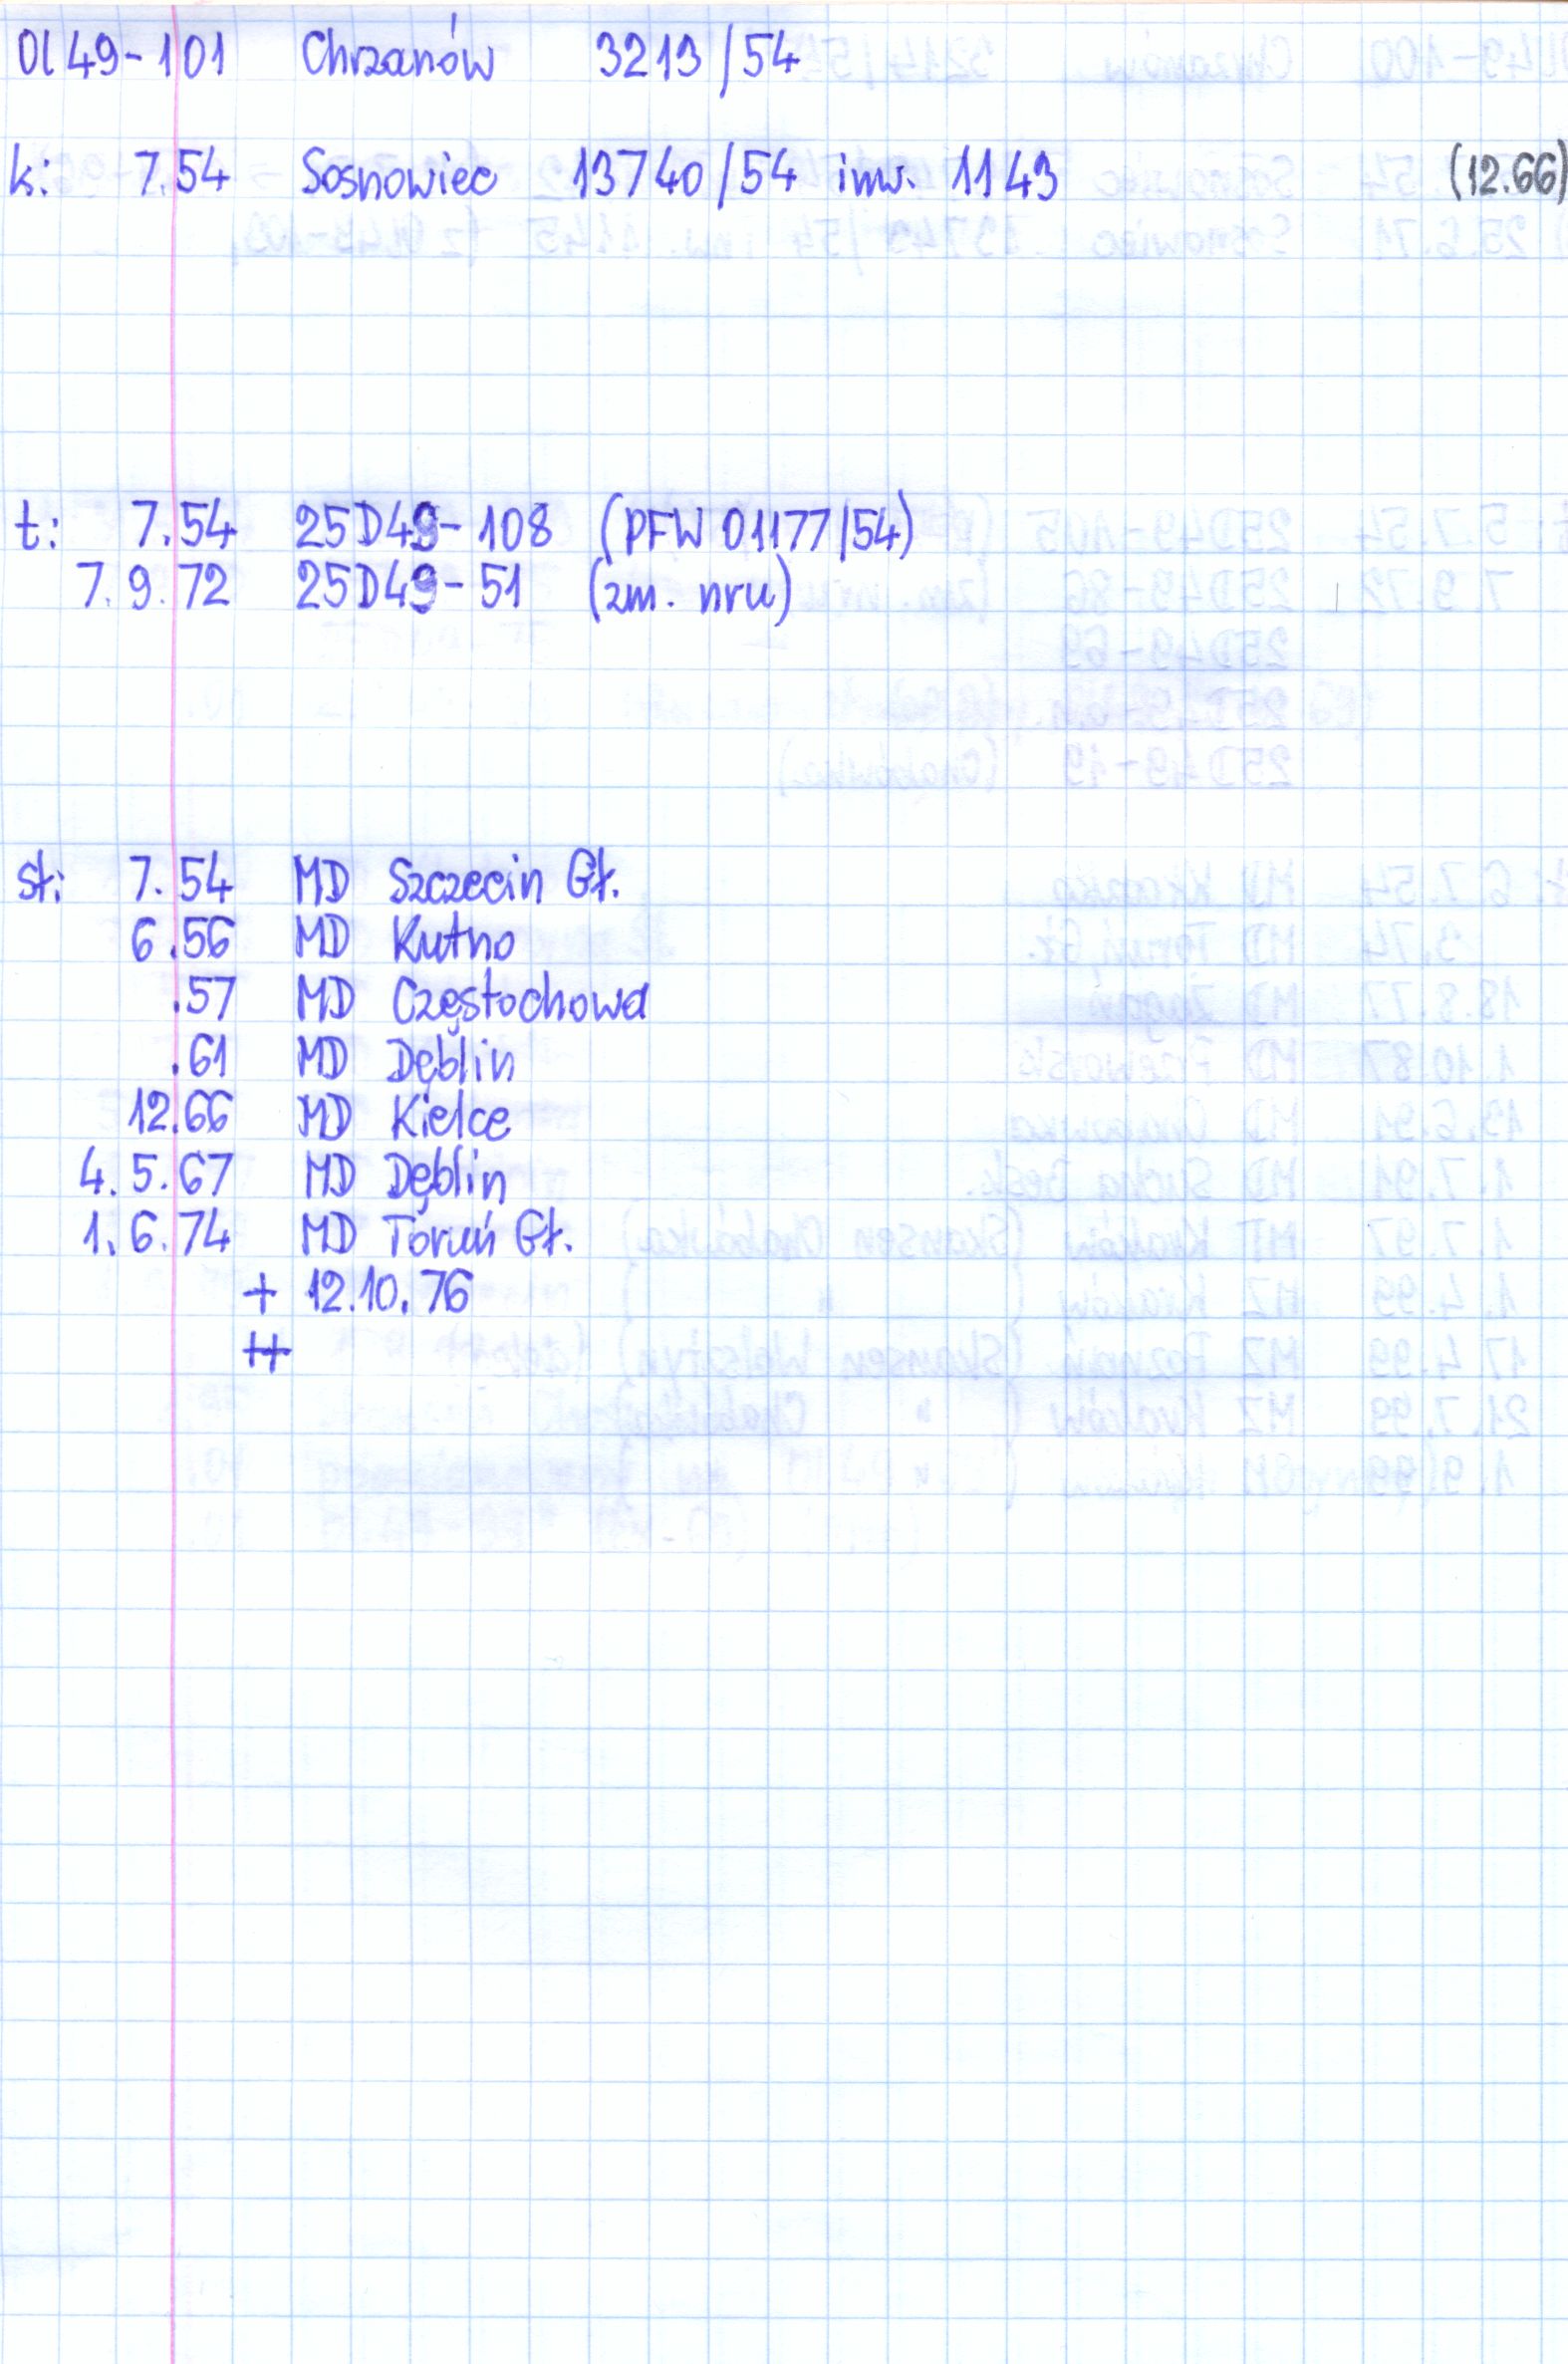 Ol49-101 Chrzanów 3213/54
k: 7.54 Sosnowiec 13740/54 inw. 1143 (12.66)
t: 7.54 25D49-108 (PFW 01177/54)
7.9.72 25D49-51 (zm. nru)
st: 7.54 MD Szczecin Gł.
6.56 MD Kutno
.57 MD Częstochowa
.61 MD Dęblin
12.66 MD Kielce
4.5.67 MD Dęblin
1.6.74 MD Toruń Gł.
+ 12.10.76
++